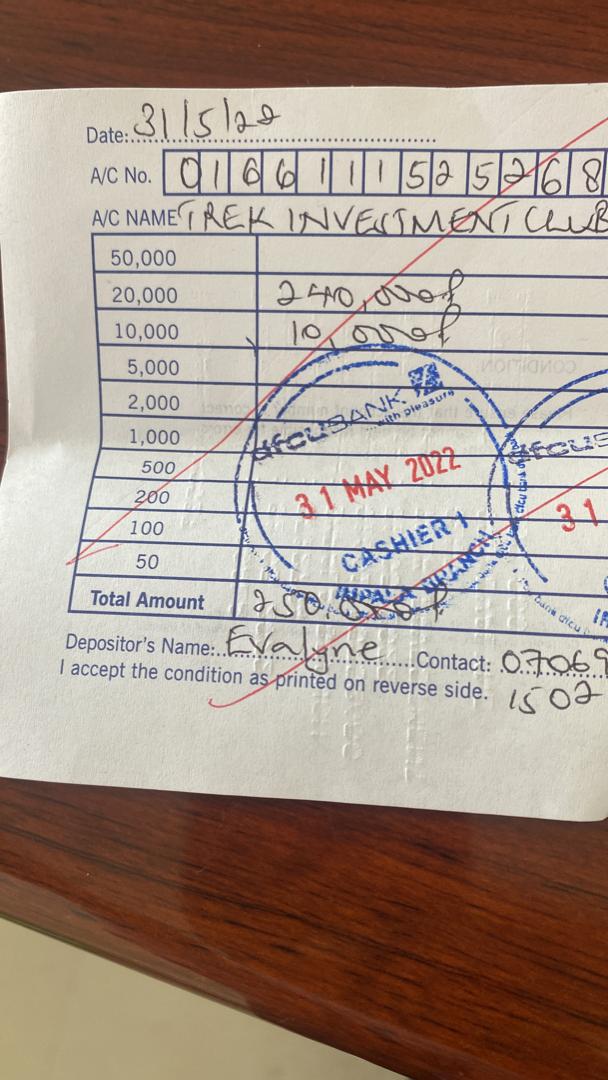 Date: 31/5/22
A/C No. 0166111525268
A/C NAME TREK INVESTMENT CLUB
50,000
20,000 240,000/
10,000 10,000/
5,000
2,000
1,000
500
200
100
50
dfcu BANK
... with pleasure
31 MAY 2022
CASHIER 1
IMPALA BRANCH
dfcu
31
Total Amount 250,000/
Depositor's Name: Evalyne Contact: 07069
I accept the condition as printed on reverse side. 1502